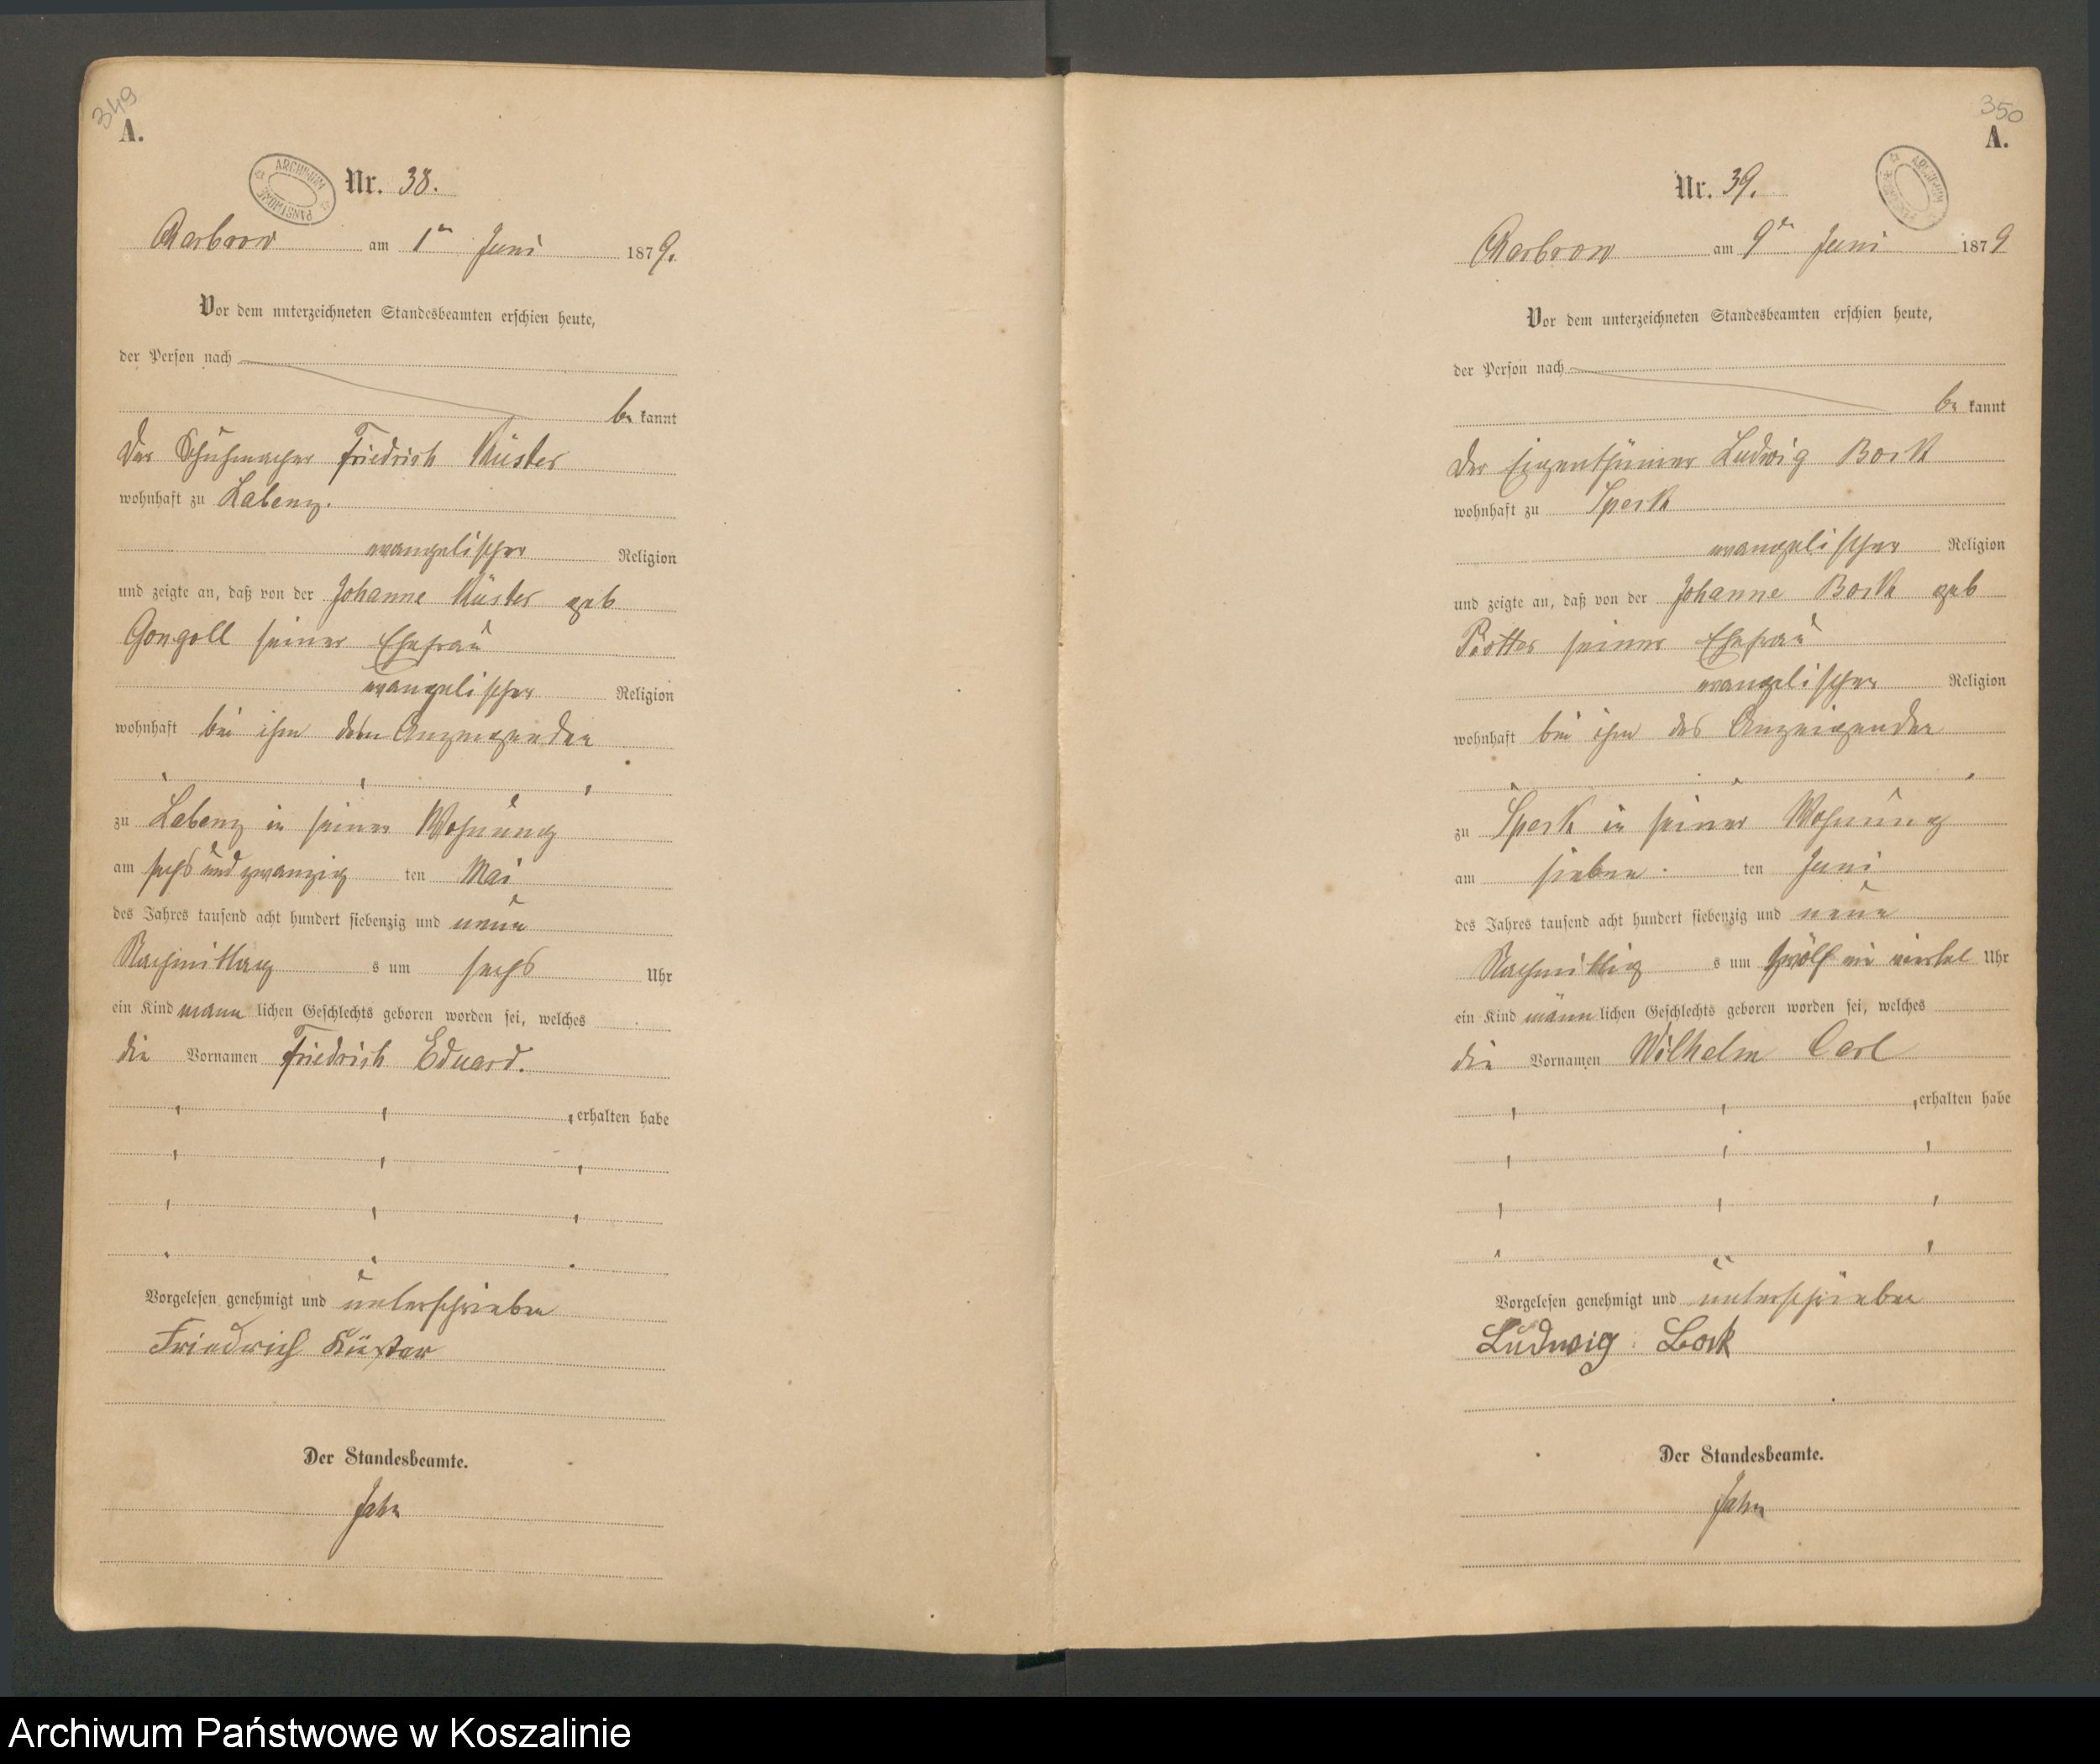 349
A.
ARCHIWUM PAŃSTWOWE
Nr. 38.
Charbrow am 1ten Juni 1879.
Vor dem unterzeichneten Standesbeamten erschien heute,
der Person nach
be kannt
der Schuhmacher Friedrich Küster
wohnhaft zu Labenz.
evangelischer Religion
und zeigte an, daß von der Johanne Küster geb
Gongoll seiner Ehefrau
evangelischer Religion
wohnhaft bei ihm dem Anzeigenden
zu Labenz in seiner Wohnung
am sechs und zwanzig ten Mai
des Jahres tausend acht hundert siebenzig und neun
Nachmittag s um sechs Uhr
ein Kind männ lichen Geschlechts geboren worden sei, welches
die Vornamen Friedrich Eduard.
erhalten habe
Vorgelesen genehmigt und unterschrieben
Friedrich Küster
Der Standesbeamte.
Jahn
350
A.
Nr. 39.
Charbrow am 9ten Juni 1879
Vor dem unterzeichneten Standesbeamten erschien heute,
der Person nach
be kannt
der Eigenthümer Ludwig Bock
wohnhaft zu Speck
evangelischer Religion
und zeigte an, daß von der Johanne Bock geb
seiner Ehefrau
evangelischer Religion
wohnhaft bei ihm des Anzeigenden
zu Speck in seiner Wohnung
am sieben ten Juni
des Jahres tausend acht hundert siebenzig und neun
Nachmittag s um zwölf ein viertel Uhr
ein Kind männ lichen Geschlechts geboren worden sei, welches
die Vornamen Wilhelm Carl
erhalten habe
Vorgelesen genehmigt und unterschrieben
Ludwig Bock
Der Standesbeamte.
Jahn
Archiwum Państwowe w Koszalinie